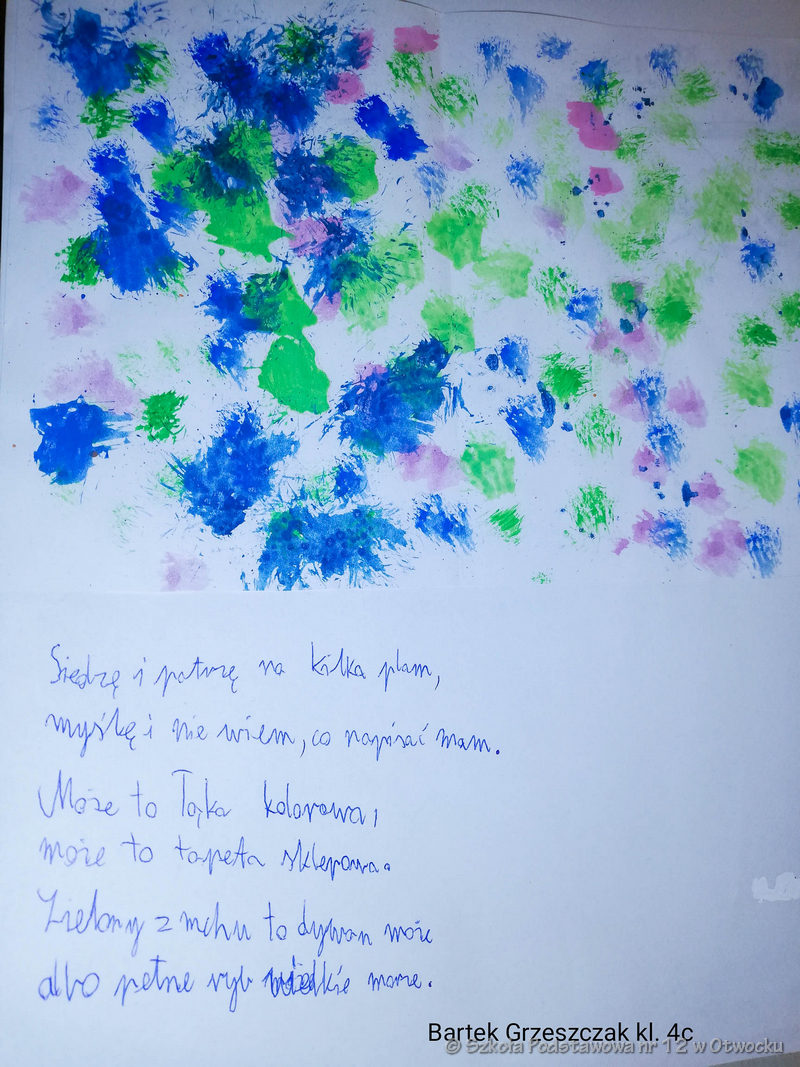 Siedzę i patrzę na kilka plam,
myślę i nie wiem, co napisać mam.
Może to łąka kolorowa,
może to tapeta sklepowa.
Zielony z mchu to dywan może
albo pełne ryb wielkie morze.
Bartek Grzeszczak kl. 4c
© Szkoła Podstawowa nr 12 w Otwocku